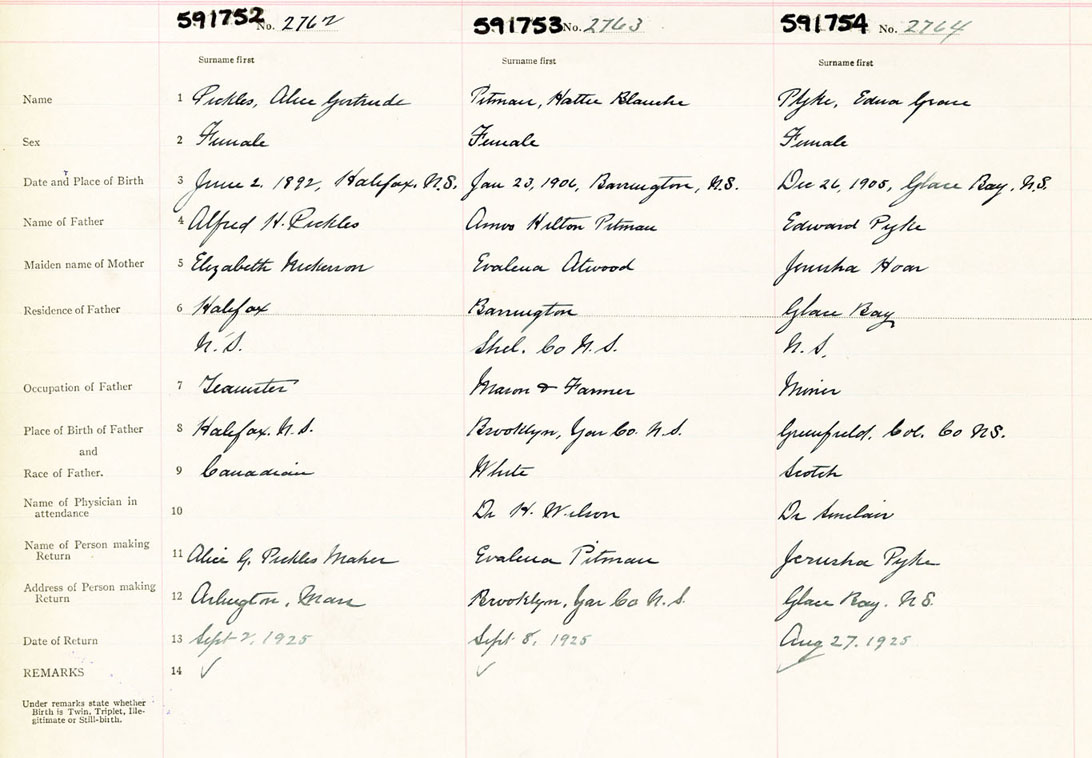 591752 No. 2762 591753 No. 2763 591754 No. 2764
Surname first Surname first Surname first
Name 1 Pickles, Alice Gertrude Pitman, Hattie Blanche Pyke, Edna Grace
Sex 2 Female Female Female
Date and Place of Birth 3 June 2, 1892, Halifax, N.S. Jan 23, 1906, Barrington, N.S. Dec 26, 1905, Glace Bay, N.S.
Name of Father 4 Alfred H. Pickles Amos Hilton Pitman Edward Pyke
Maiden name of Mother 5 Elizabeth Nickerson Evalena Atwood Jerusha Hoar
Residence of Father 6 Halifax Barrington Glace Bay
N.S. Shel. Co N.S. N.S.
Occupation of Father 7 Teamster Mason & Farmer Miner
Place of Birth of Father 8 Halifax. N.S. Brooklyn, Yar Co. N.S. Greenfield, Col. Co N.S.
and
Race of Father. 9 Canadian White Scotch
Name of Physician in
attendance 10 Dr H. Wilson Dr Sinclair
Name of Person making
Return 11 Alice G. Pickles Maher Evalena Pitman Jerusha Pyke
Address of Person making
Return 12 Arlington, Mass Brooklyn, Yar Co N.S. Glace Bay. N.S.
Date of Return 13 Sept 2, 1925 Sept 8, 1925 Aug 27. 1925
REMARKS 14 ✓ ✓ ✓
Under remarks state whether
Birth is Twin, Triplet, Ille-
gitimate or Still-birth.